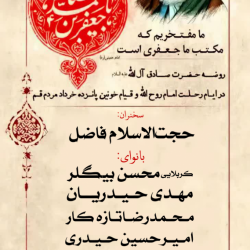 ما مفتخریم که
مکتب ما جعفری است
امام خمینی(ره)
روضه حضرت صادق آل الله علیه السلام
در ایام رحلت امام روح الله و قیام خونین پانزده خرداد مردم قم
سخنران:
حجت‌الاسلام فاضل
بانوای:
کربلایی محسن بیگلر
مهدی حیدریان
محمدرضا تازه کار
امیرحسین حیدری